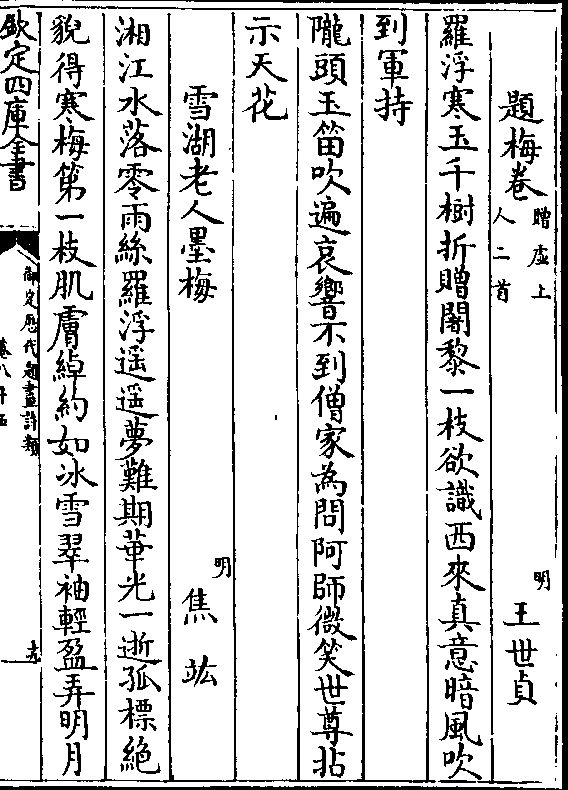 題梅卷贈虛上人二首 明 王世貞
羅浮寒玉千樹折贈闍黎一枝欲識西來真意暗風吹
到軍持
隴頭玉笛吹遍哀響不到僧家為問阿師微笑世尊拈
示天花
雪湖老人墨梅 明 焦竑
湘江水落零雨絲羅浮遥遥夢難期華光一逝孤標絶
貌得寒梅第一枝肌膚綽約如冰雪翠袖輕盈弄明月
欽定四庫全書 御定歷代題畫詩類 卷八十五